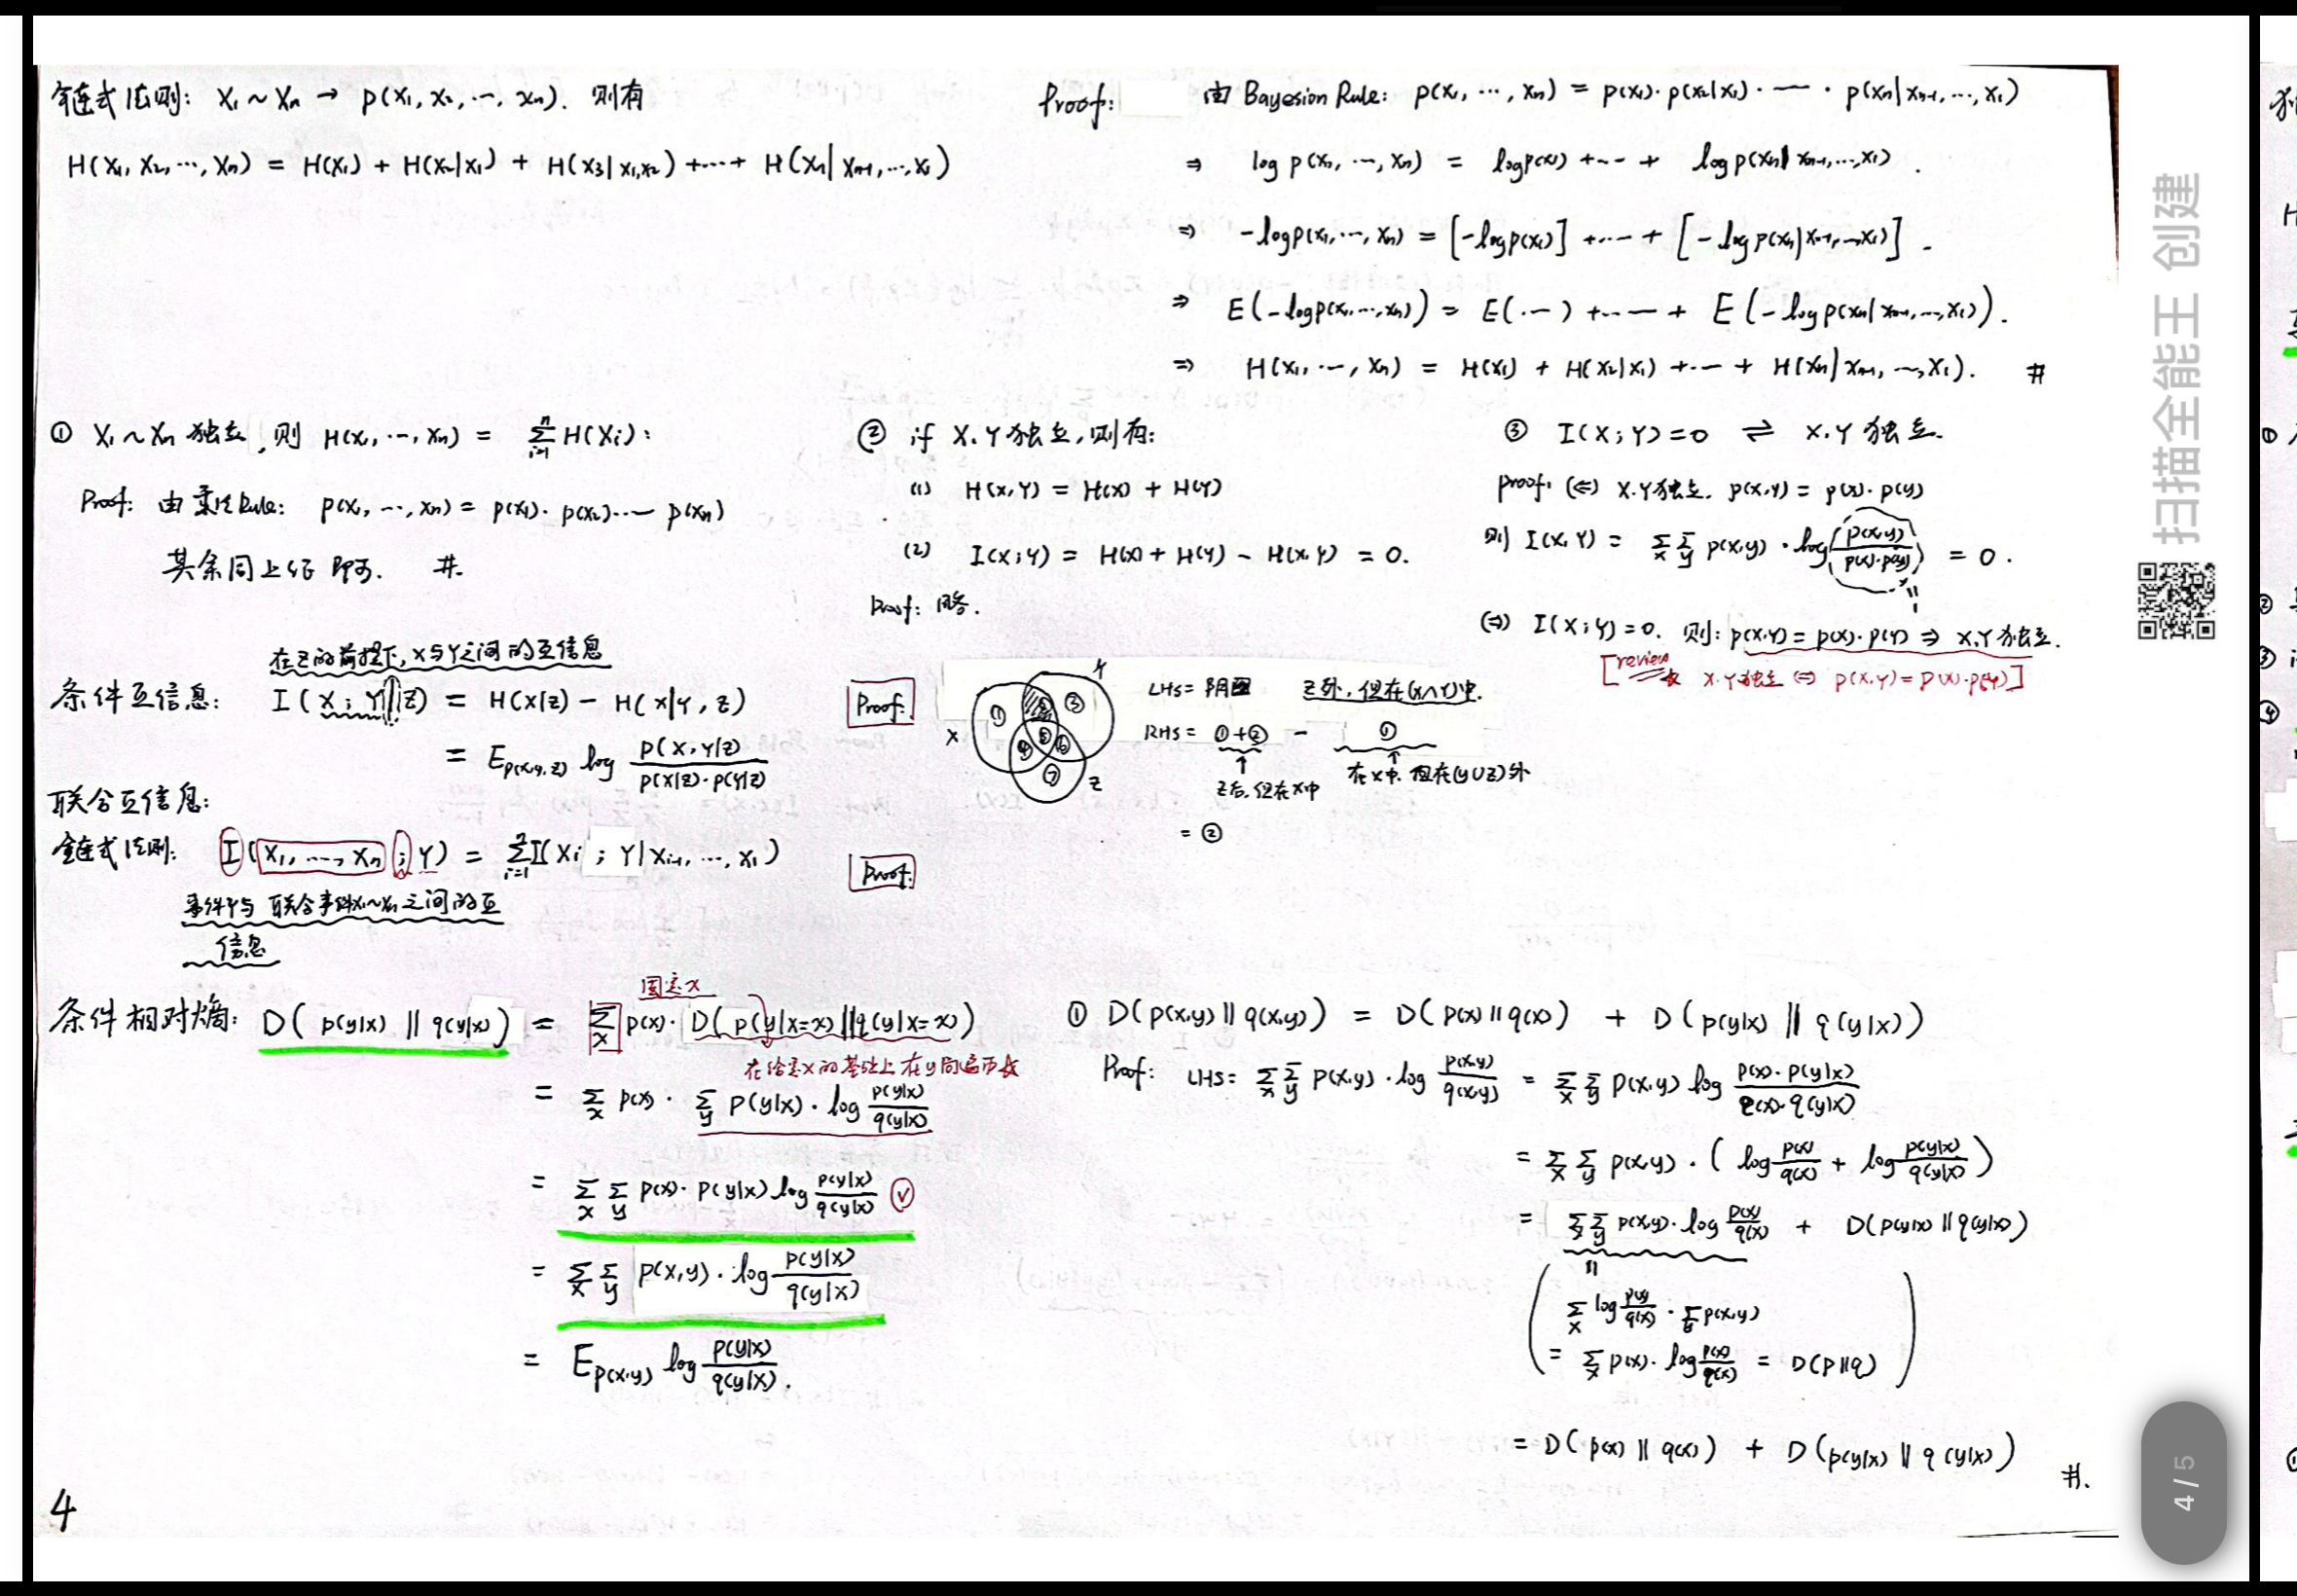 链式法则: X₁ ~ Xₙ → p(x₁, x₂, ⋯, xₙ). 则有
H(X₁, X₂, ⋯, Xₙ) = H(X₁) + H(X₂|X₁) + H(X₃|X₁,X₂) +⋯+ H(Xₙ|Xₙ₋₁, ⋯, X₁)
Proof: 由 Bayesion Rule: p(x₁, ⋯, xₙ) = p(x₁)· p(x₂|x₁)· ⋯ · p(xₙ|xₙ₋₁, ⋯, x₁)
⇒ log p(x₁, ⋯, xₙ) = log p(x₁) +⋯+ log p(xₙ|xₙ₋₁, ⋯, x₁).
⇒ -log p(x₁, ⋯, xₙ) = [-log p(x₁)] +⋯+ [-log p(xₙ|xₙ₋₁, ⋯, x₁)].
⇒ E(-log p(x₁, ⋯, xₙ)) = E(⋯) +⋯+ E(-log p(xₙ|xₙ₋₁, ⋯, x₁)).
⇒ H(X₁, ⋯, Xₙ) = H(X₁) + H(X₂|X₁) +⋯+ H(Xₙ|Xₙ₋₁, ⋯, X₁). #
① X₁ ~ Xₙ 独立, 则 H(X₁, ⋯, Xₙ) = Σᵢ₌₁ⁿ H(Xᵢ):
Proof: 由乘法Rule: p(x₁, ⋯, xₙ) = p(x₁)· p(x₂)⋯ p(xₙ)
其余同上征即可. #.
② if X. Y 独立, 则有:
(1) H(X,Y) = H(X) + H(Y)
(2) I(X;Y) = H(X) + H(Y) - H(X,Y) = 0.
Proof: 略.
③ I(X;Y)=0 ⇌ X.Y 独立.
proof: (⇐) X.Y独立. p(x,y) = p(x)· p(y)
则 I(X,Y) = Σₓ Σᵧ p(x,y) · log (p(x,y) / p(x)·p(y)) = 0.
1
(⇒) I(X;Y)=0. 则: p(x,y) = p(x)· p(y) ⇒ X.Y独立.
[review X.Y独立 ⇔ p(x,y) = p(x)·p(y)]
在Z的前提下, X与Y之间的互信息
条件互信息: I(X;Y|Z) = H(X|Z) - H(X|Y, Z)
= E_p(x,y,z) log (p(x,y|z) / p(x|z)·p(y|z))
Proof:
X Y Z ① ② ③ ④ ⑤ ⑥ ⑦
LHS = 阴图 Z外, 但在(X∩Y)中.
RHS = ①+② - ①
Z后, 但在X中 在X中, 但在(Y∪Z)外
= ②
联合互信息:
链式法则: I(X₁, ⋯, Xₙ ; Y) = Σᵢ₌₁ⁿ I(Xᵢ ; Y|Xᵢ₋₁, ⋯, X₁)
Proof.
事件Y与联合事件X₁~Xₙ之间的互
信息
固定x
条件相对熵: D( p(y|x) ‖ q(y|x) ) = Σₓ p(x)· D( p(y|X=x) ‖ q(y|X=x) )
在给定x的基础上在y间遍历求
= Σₓ p(x) · Σᵧ p(y|x) · log (p(y|x) / q(y|x))
= Σₓ Σᵧ p(x)· p(y|x) log (p(y|x) / q(y|x)) ✓
= Σₓ Σᵧ p(x,y) · log (p(y|x) / q(y|x))
= E_p(x,y) log (p(y|x) / q(y|x)).
① D(p(x,y) ‖ q(x,y)) = D(p(x) ‖ q(x)) + D(p(y|x) ‖ q(y|x))
Proof: LHS = Σₓ Σᵧ p(x,y) · log (p(x,y) / q(x,y)) = Σₓ Σᵧ p(x,y) log (p(x)· p(y|x) / q(x)· q(y|x))
= Σₓ Σᵧ p(x,y) · ( log (p(x) / q(x)) + log (p(y|x) / q(y|x)) )
= Σₓ Σᵧ p(x,y)· log (p(x) / q(x)) + D(p(y|x) ‖ q(y|x))
Σₓ log (p(x) / q(x)) · Σᵧ p(x,y)
= Σₓ p(x)· log (p(x) / q(x)) = D(p‖q)
= D(p(x) ‖ q(x)) + D(p(y|x) ‖ q(y|x)) #.
4
扫描全能王 创建
4 / 5